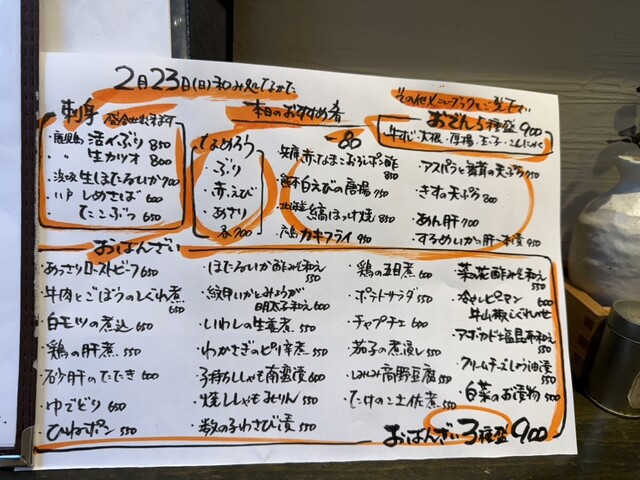 2月23日(日)和み処てるかで
本日のおすすめ肴
刺身
盛合せ出来ます
・鹿児島 活〆ぶり 850
・〃 生カツオ 800
・浜坂 生ほたるいか 700
・八戸 しめさば 660
・たこぶつ 650
なめろう
・ぶり
・赤えび
・あさり
各700
おでん5種盛 900
牛すじ・大根・厚揚・玉子・こんにゃく
一品
・兵庫 赤なまこおろしポン酢 850
白えびの唐揚 750
・北海道 縞ほっけ焼 850
・広島 カキフライ 950
・アスパラと舞茸の天ぷら 750
・きすの天ぷら 800
・あん肝 700
・するめいかの肝一本漬 950
おばんざい
・あっさりローストビーフ 650
・牛肉とごぼうのしぐれ煮 650
・白モツの煮込 650
・鶏の肝煮 550
・砂肝のたたき 600
・ゆでどり 600
・ひねポン 550
・ほたるいか酢みそ和え 550
・紋甲いかとみょうが
明太子和え 600
・いわしの生姜煮 550
・わかさぎのピリ辛煮 550
・子持ちししゃも南蛮漬 600
・焼ししゃもみりん 550
・数の子わさび漬 550
・鶏の五目煮 600
・ポテトサラダ 550
・チャプチェ 600
・茄子の煮浸し 550
・高野豆腐 550
・たけのこ土佐煮 550
・菜の花酢みそ和え 550
・冷やしピーマン 600
牛山椒しぐれのせ
・アボカド塩昆布和え 550
・クリームチーズしょう油漬 550
・白菜のお漬物 500
おばんざい3種盛 900